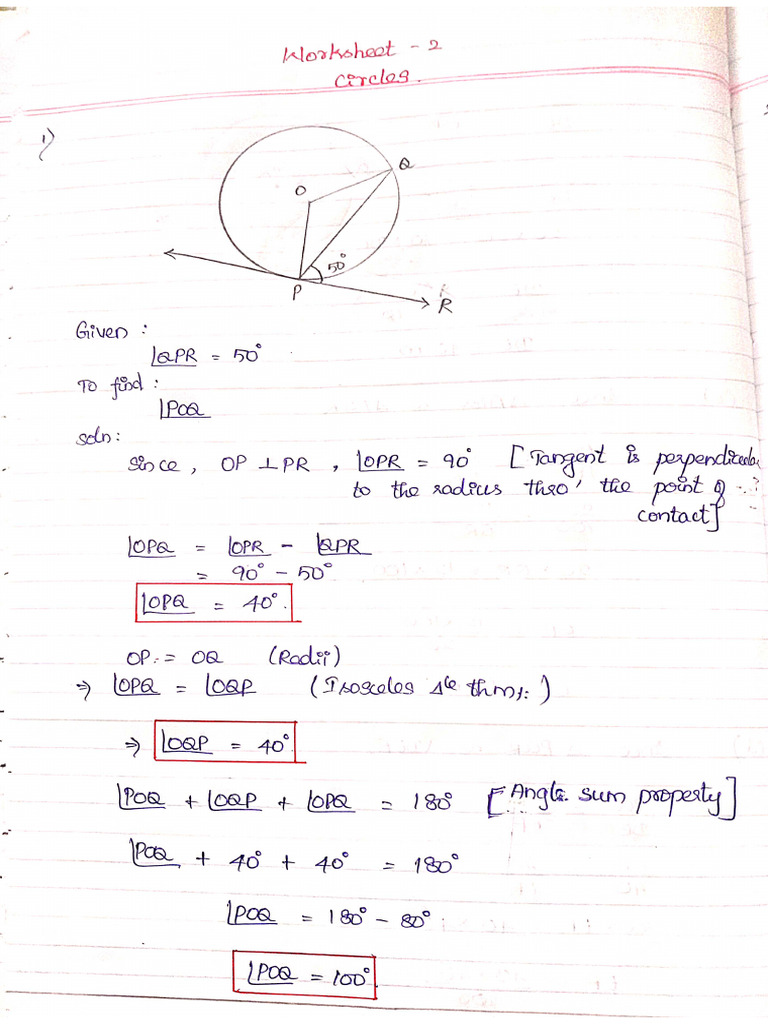 Worksheet - 2
Circles.
1)
Q
O
50°
P
R
Given :
∠QPR = 50°
To find :
∠POQ
Soln:
Since, OP ⊥ PR , ∠OPR = 90° [Tangent is perpendicular
to the radius thro' the point of
contact]
∠OPQ = ∠OPR - ∠QPR
= 90° - 50°
∠OPQ = 40°.
OP = OQ (Radii)
⇒ ∠OPQ = ∠OQP (Isosceles Δle thm)
⇒ ∠OQP = 40°
∠POQ + ∠OQP + ∠OPQ = 180° [Angle sum property]
∠POQ + 40° + 40° = 180°
∠POQ = 180° - 80°
∠POQ = 100°